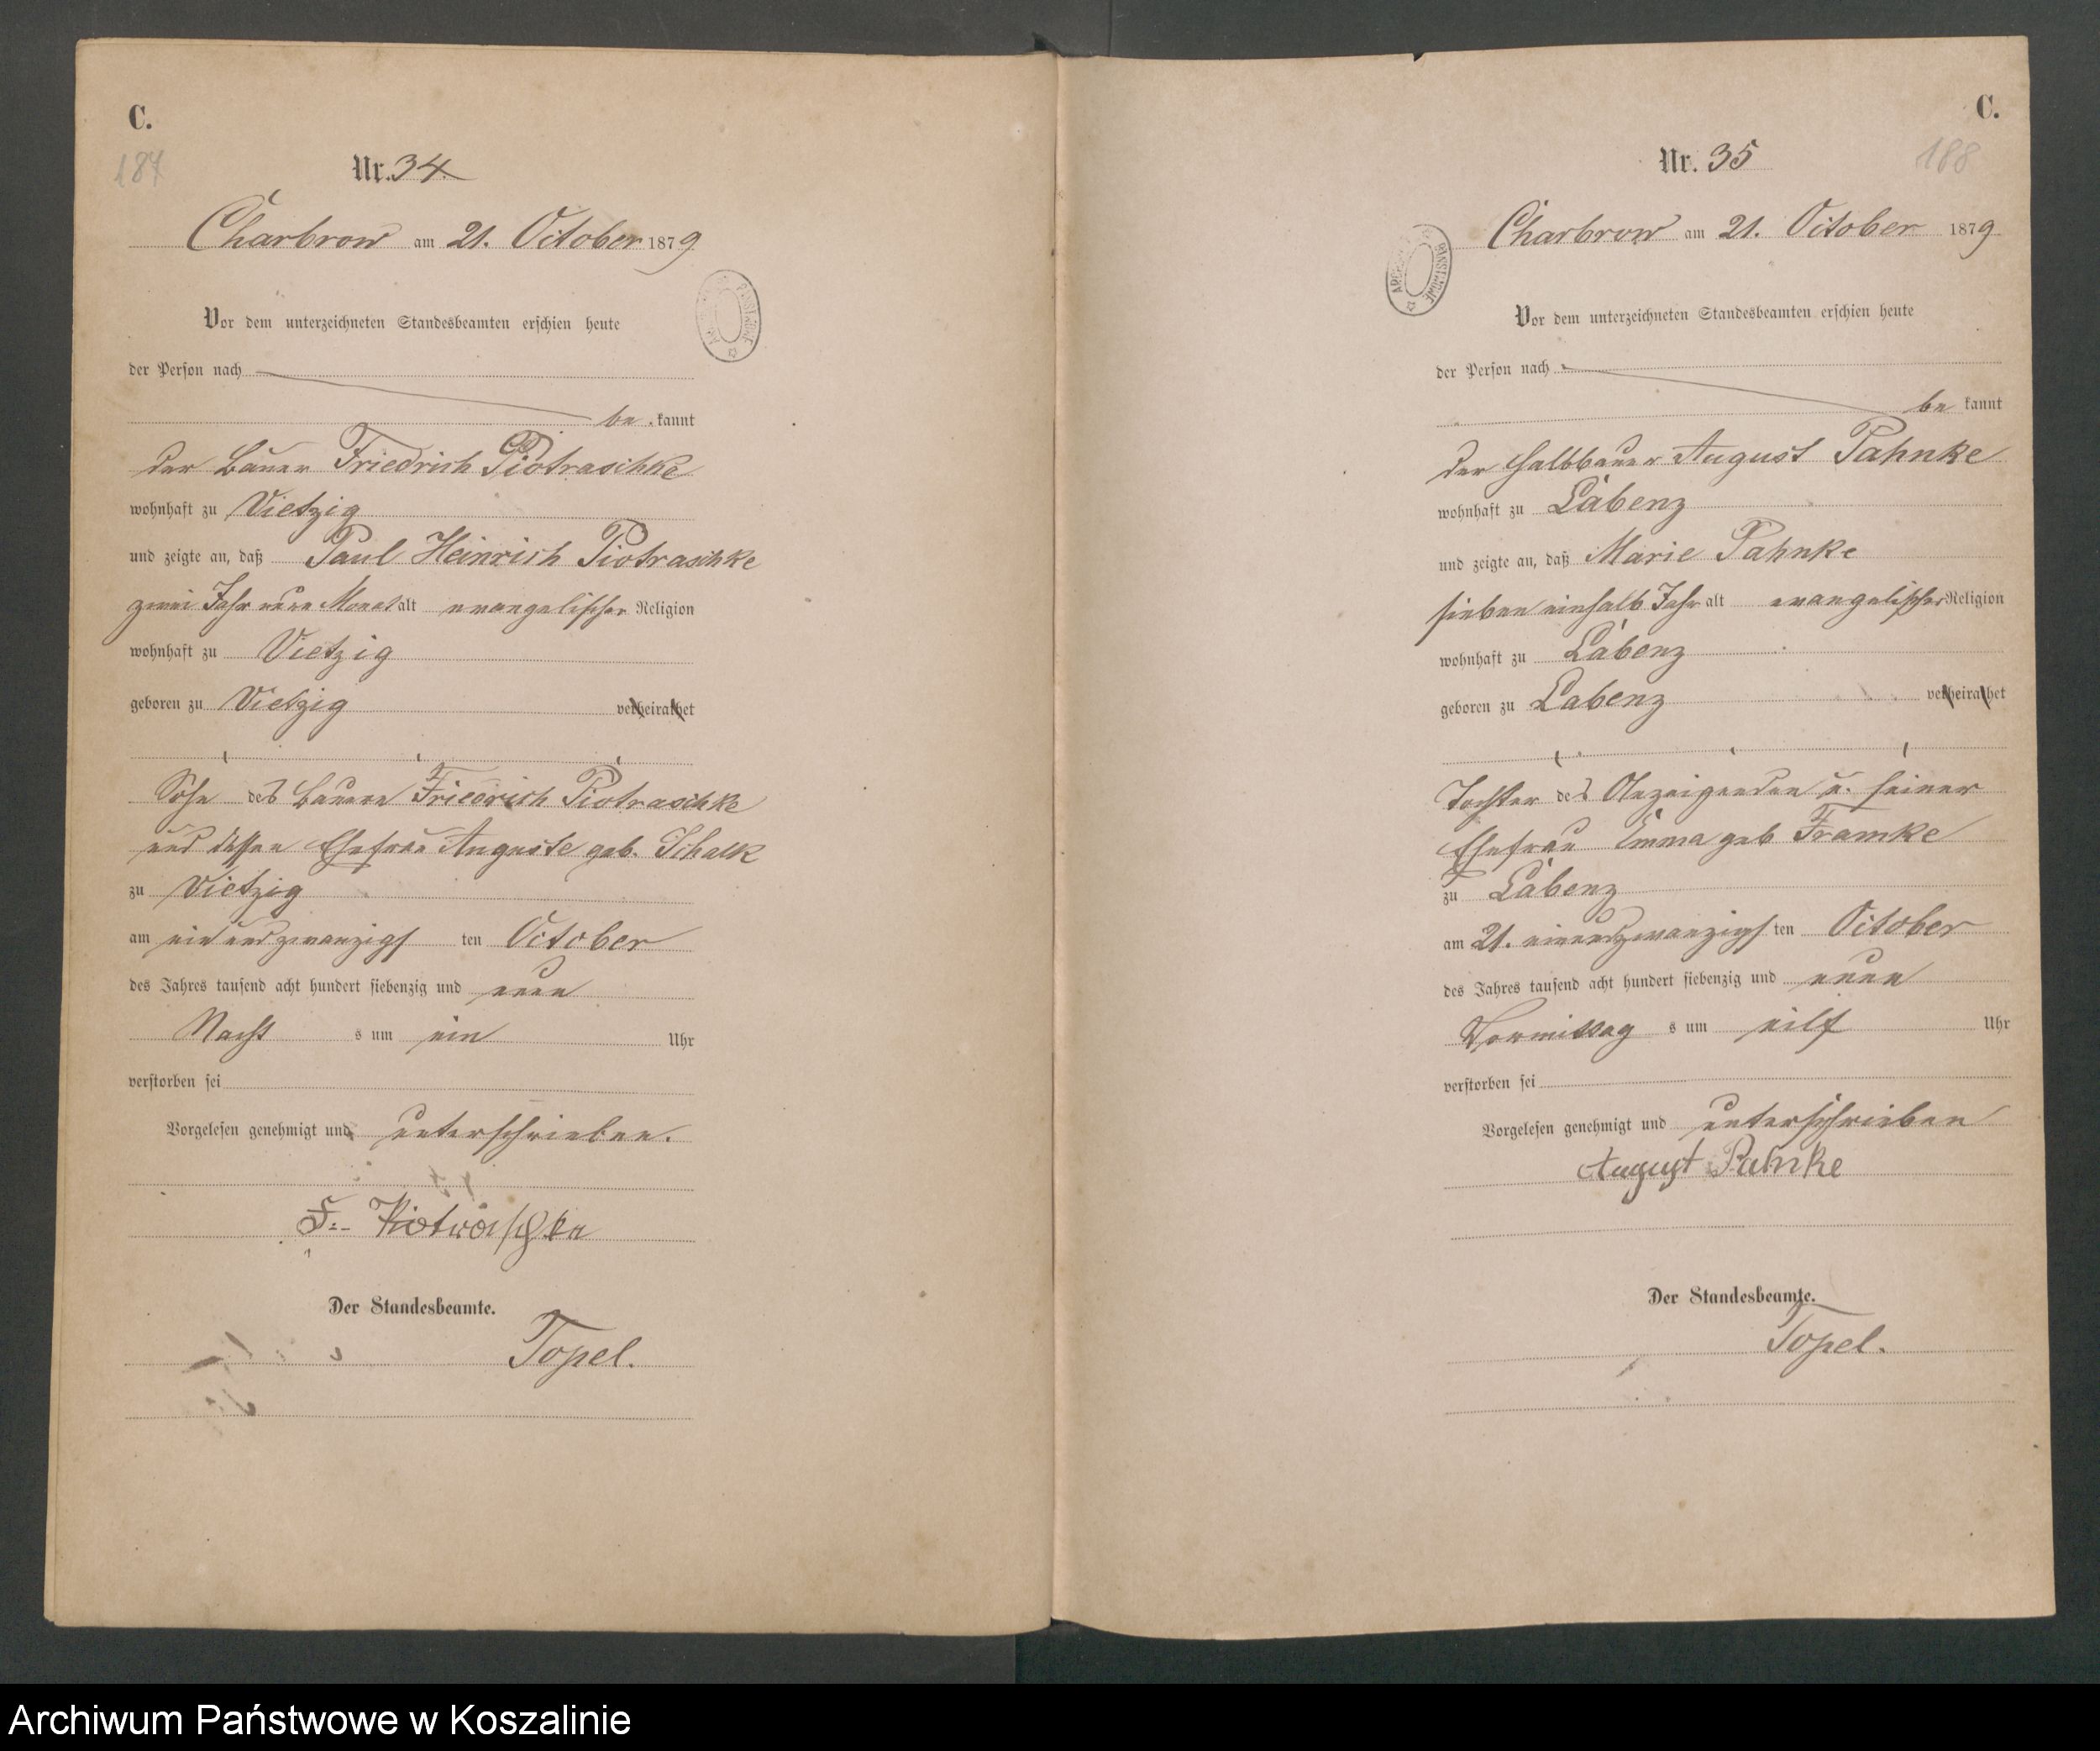 C.
187
Nr. 34.
Charbrow am 21. October 1879
Vor dem unterzeichneten Standesbeamten erschien heute
der Person nach
be kannt
der Bauer Friedrich Piotraschke
wohnhaft zu Vietzig
und zeigte an, daß Paul Heinrich Piotraschke
zwei Jahr neun Monat alt evangelischer Religion
wohnhaft zu Vietzig
geboren zu Vietzig verheirathet
Sohn des Bauern Friedrich Piotraschke
und dessen Ehefrau Auguste geb. Schalk
zu Vietzig
am ein und zwanzigs ten October
des Jahres tausend acht hundert siebenzig und neun
Nacht s um ein Uhr
verstorben sei
Vorgelesen genehmigt und unterschrieben.
F. Piotraschke
Der Standesbeamte.
Topel.
C.
188
Nr. 35
Charbrow am 21. October 1879
Vor dem unterzeichneten Standesbeamten erschien heute
der Person nach
be kannt
der Halbbauer August Pahnke
wohnhaft zu Labenz
und zeigte an, daß Marie Pahnke
sieben einhalb Jahr alt evangelischer Religion
wohnhaft zu Labenz
geboren zu Labenz verheirathet
Tochter des Anzeigenden u. seiner
Ehefrau Emma geb Framke
zu Labenz
am 21. einundzwanzigs ten October
des Jahres tausend acht hundert siebenzig und neun
Vormittag s um eilf Uhr
verstorben sei
Vorgelesen genehmigt und unterschrieben
August Pahnke
Der Standesbeamte.
Topel.
Archiwum Państwowe w Koszalinie